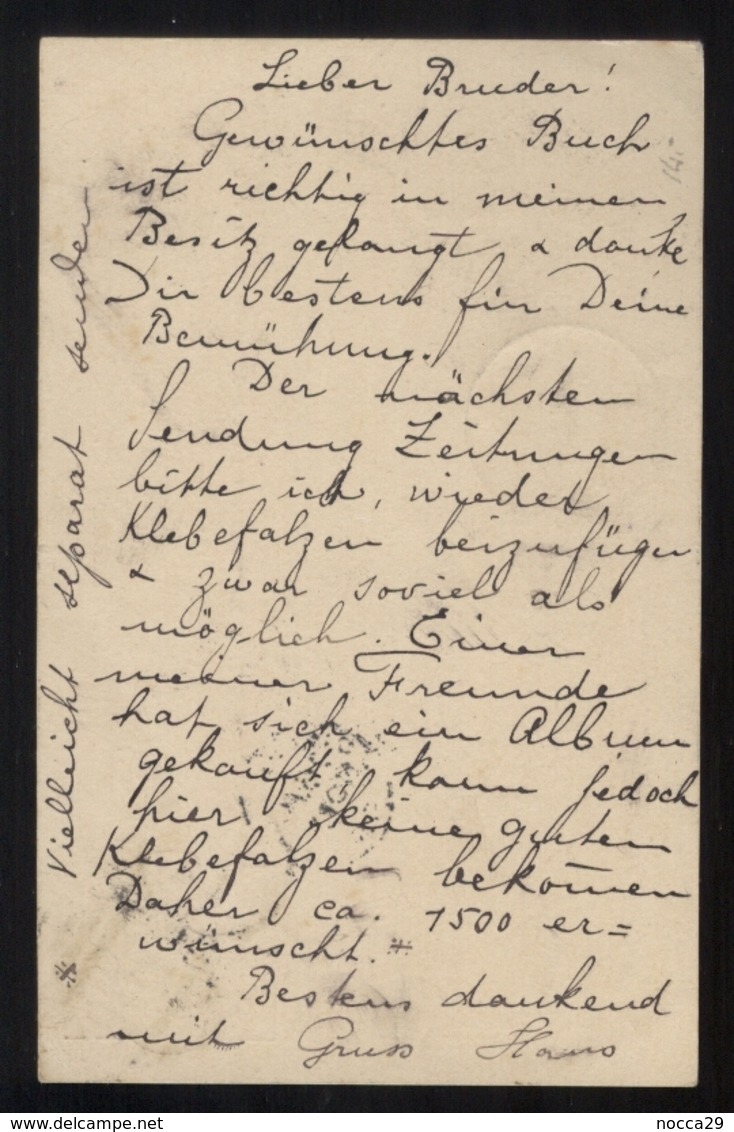 Lieber Bruder!
Gewünschtes Buch
ist richtig in meinen
Besitz gelangt & danke
Dir bestens für Deine
Bemühung.
Der nächsten
Sendung Zeitungen
bitte ich, wieder
Klebefalzen beizufügen
& zwar soviel als
möglich. Einer
meiner Freunde
hat sich ein Album
gekauft kann jedoch
hier keine guten
Klebefalzen bekom̅en
Daher ca. 1500 er=
wünscht. *
Bestens dankend
mit Gruss Hans
* Vielleicht separat senden
14.
nocca29